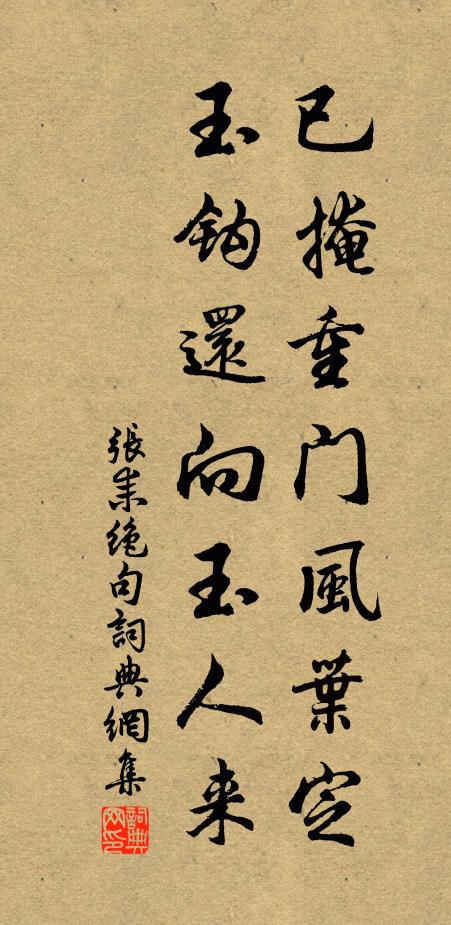 已掩重门風葉定
玉鈎還向玉人来
張耒绝句詞典網集
詞典網印